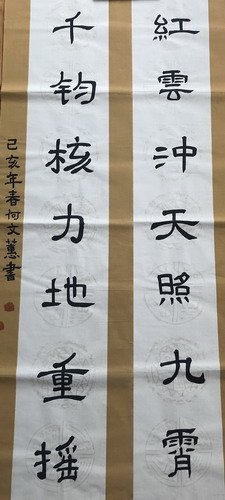 紅雲沖天照九霄
千钧核力地重摇
己亥年春何文蕙書